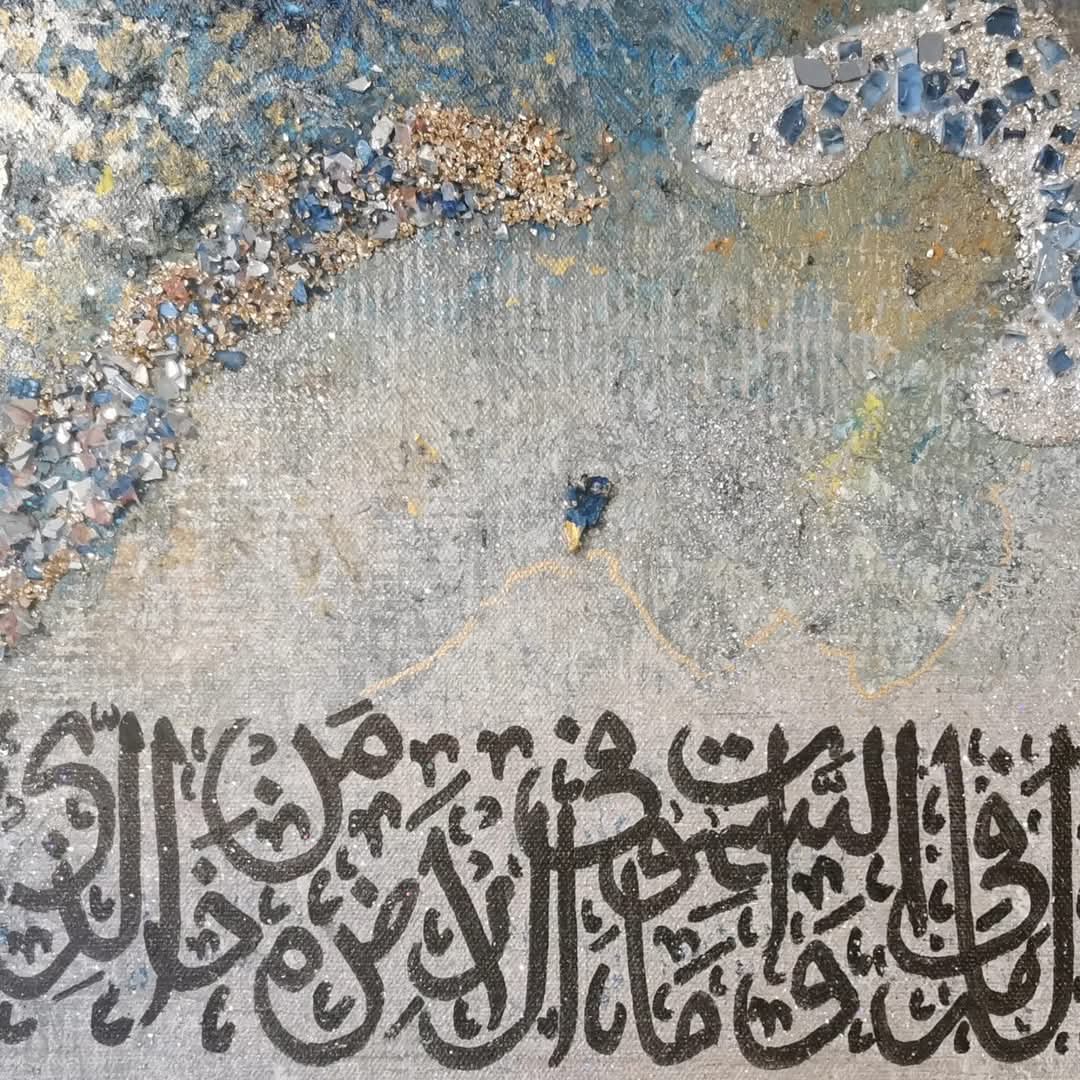 ما في السموت وما في الارض من ذا الذى